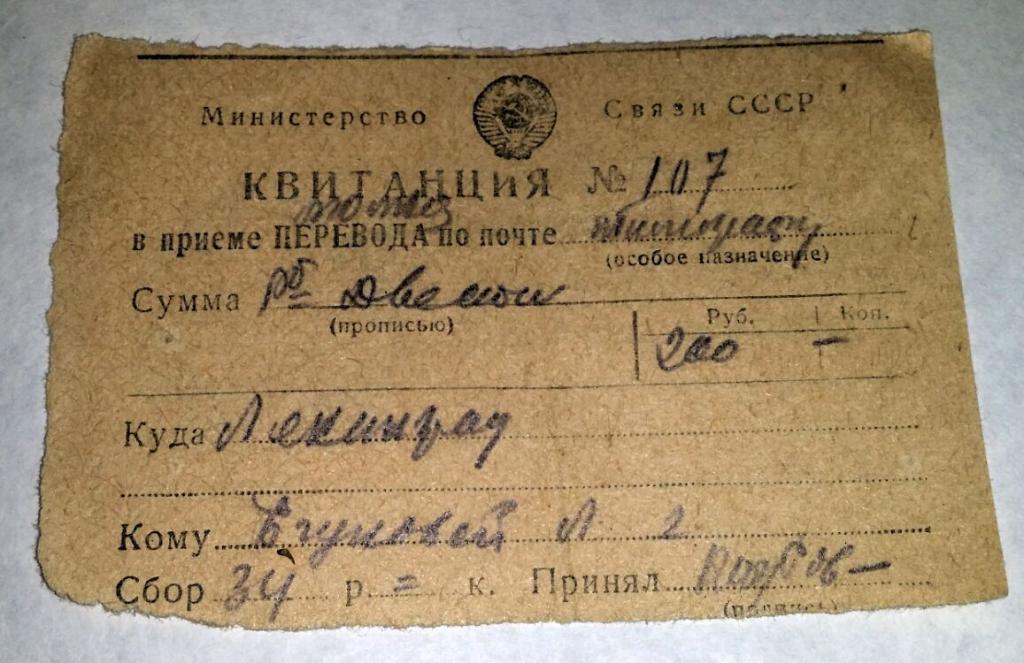 Министерство Связи СССР
КВИТАНЦИЯ № 107
в приеме ПЕРЕВОДА по почте
(особое назначение)
Сумма рб Двести
(прописью)
Руб. Коп.
200 —
Куда Ленинград
Кому Егуновой Л
Сбор 34 р. = к. Принял
(подпись)